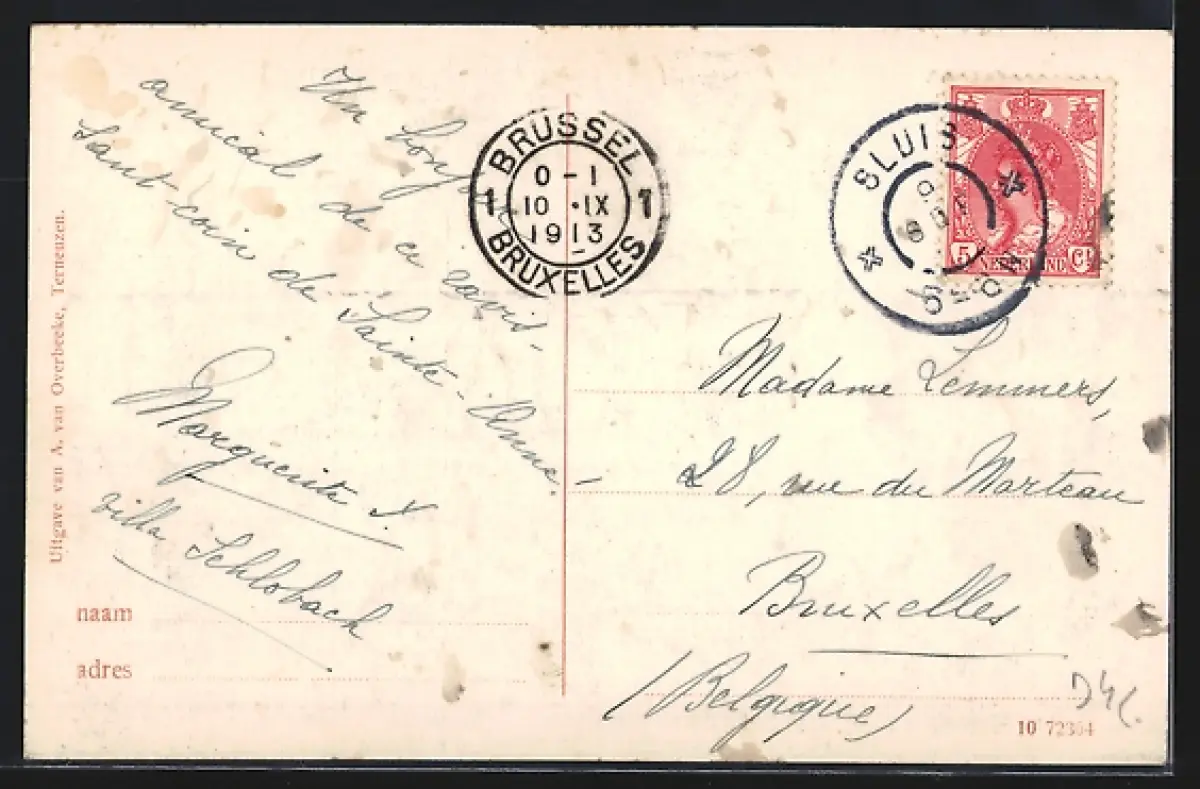 Un bonjour
amical de ce ravis-
sant coin de Sainte-Anne.
Marguerite X.
villa Schlobach
Uitgave van A. van Overbeeke, Terneuzen.
naam
adres
BRUSSEL
1 1
0 - 1
10 · IX
1913
BRUXELLES
SLUIS
5 NEDERLAND Ct
Madame Lemmers,
28, rue du Marteau
Bruxelles
(Belgique)
10 72364